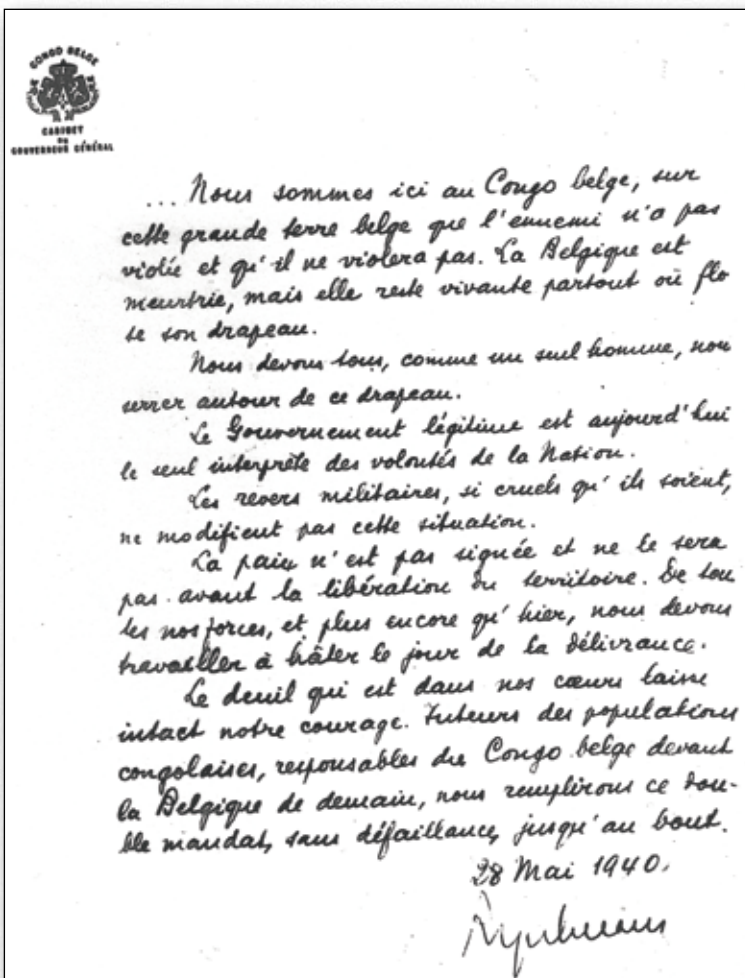 CONGO BELGE
CABINET
DU
GOUVERNEUR GÉNÉRAL
... Nous sommes ici au Congo belge, sur
cette grande terre belge que l'ennemi n'a pas
violée et qu'il ne violera pas. La Belgique est
meurtrie, mais elle reste vivante partout où flo
te son drapeau.
Nous devons tous, comme un seul homme, nou
serrer autour de ce drapeau.
Le Gouvernement légitime est aujourd'hui
le seul interprète des volontés de la Nation.
Les revers militaires, si cruels qu'ils soient,
ne modifient pas cette situation.
La paix n'est pas signée et ne le sera
pas avant la libération du territoire. De tou
tes nos forces, et plus encore qu'hier, nous devons
travailler à hâter le jour de la délivrance.
Le deuil qui est dans nos cœurs laisse
intact notre courage. Tuteurs des populations
congolaises, responsables du Congo belge devant
la Belgique de demain, nous remplirons ce dou-
ble mandat, sans défaillance, jusqu'au bout.
28 Mai 1940.